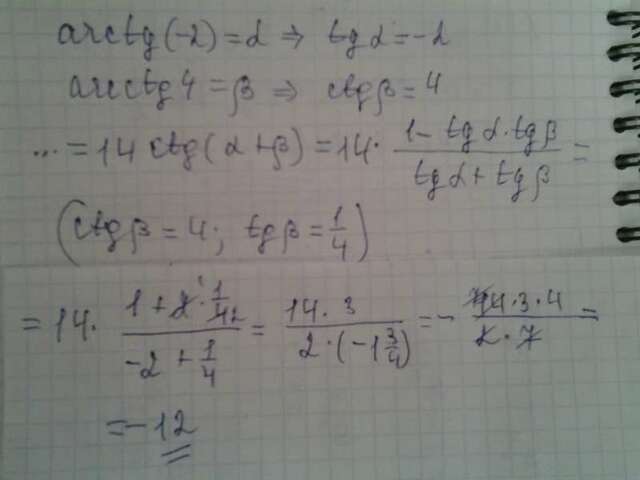 arctg(-2) = α ⇒ tg α = -2
arcctg 4 = β ⇒ ctg β = 4
... = 14 ctg(α + β) = 14 · (1 - tg α · tg β)/(tg α + tg β) =
(ctg β = 4; tg β = 1/4)
= 14 · (1 + 2 · 1/4)/(-2 + 1/4) = (14 · 3)/(2 · (-1 3/4)) = - (14 · 3 · 4)/(2 · 7) =
= -12